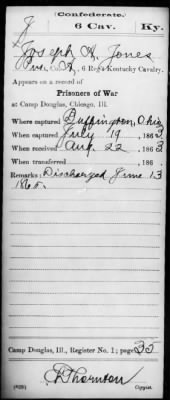 (Confederate.)
J 6 Cav. Ky.
Joseph A. Jones
Pvt. Co. A, 6 Reg't Kentucky Cavalry.
Appears on a record of
Prisoners of War
at Camp Douglas, Chicago, Ill.
Where captured Buffington, Ohio
When captured July 19, 1863
When received Aug 22, 1863
When transferred , 186 .
Remarks: Discharged June 13
1865.
Camp Douglas, Ill., Register No. 1; page 35
Thornton
Copyist.